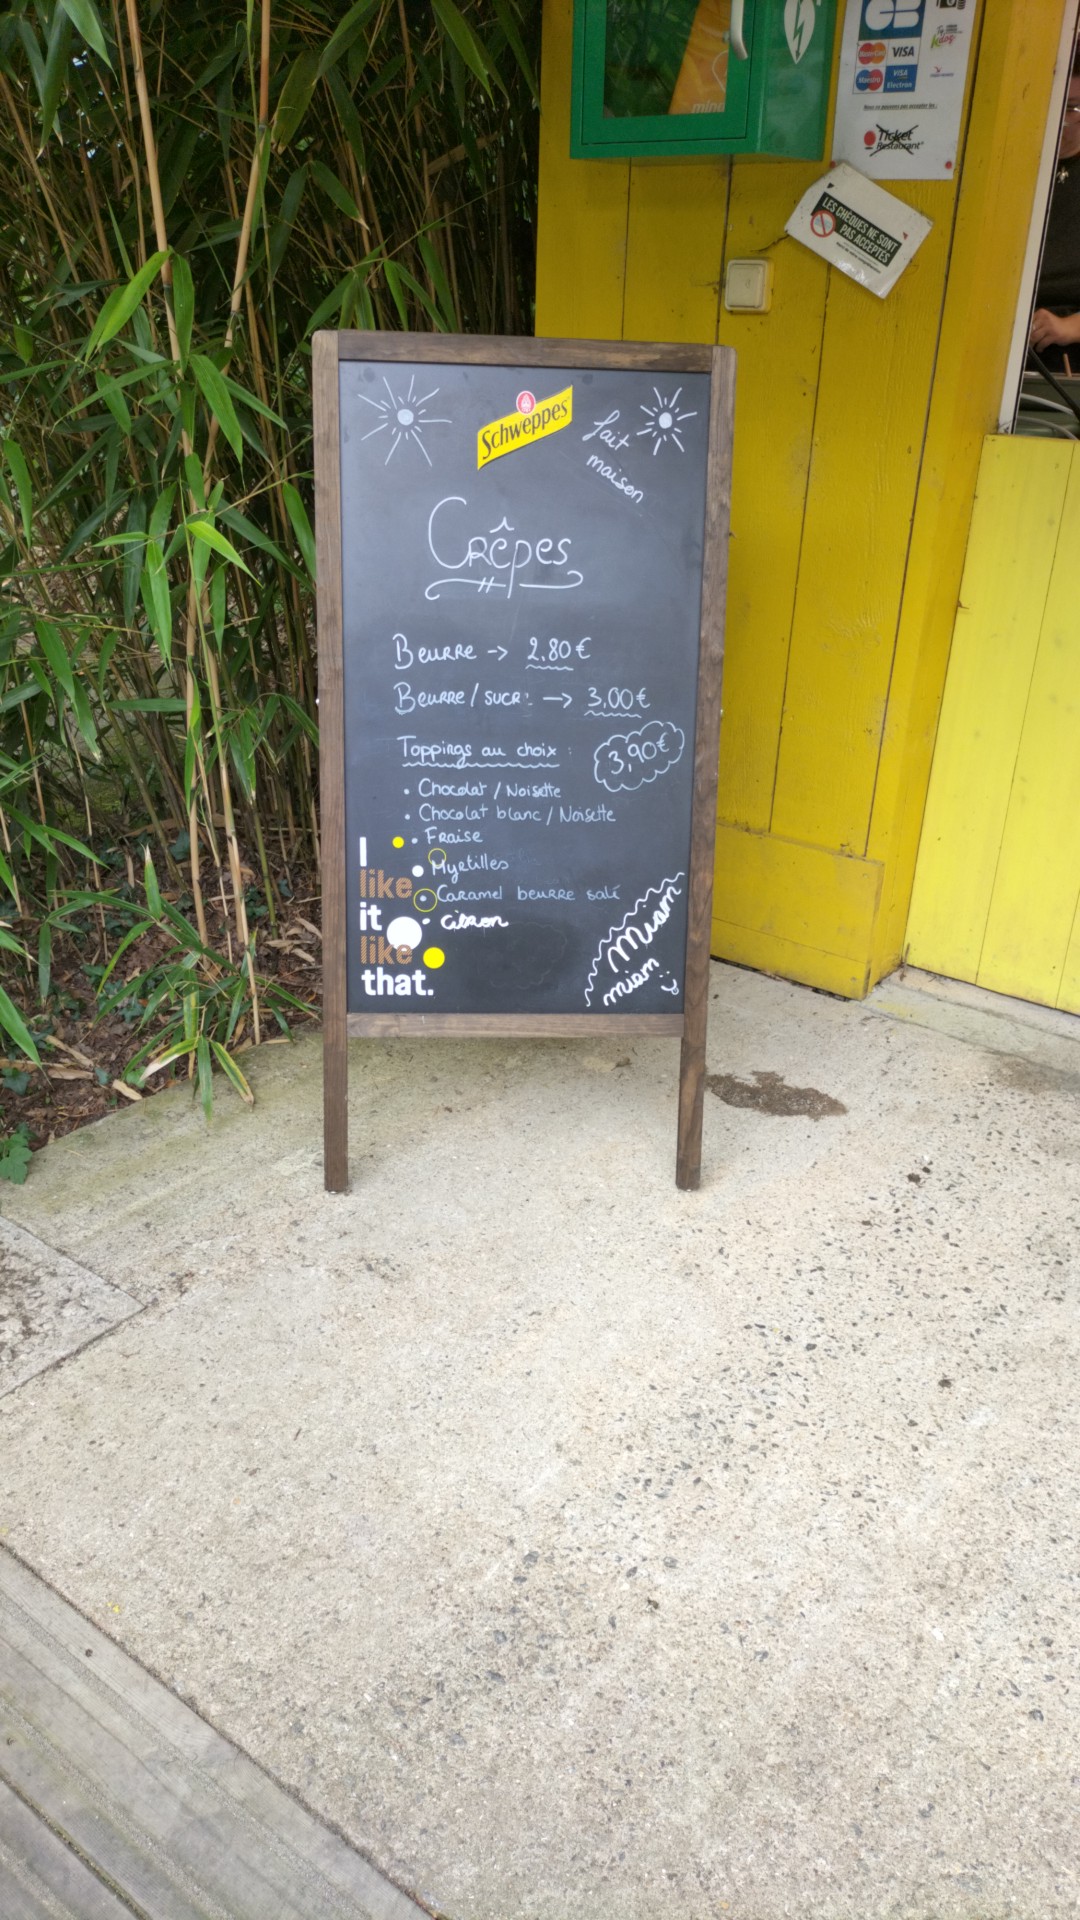 CB
MasterCard VISA
Maestro VISA Electron
Ticket
Restaurant
LES CHÈQUES NE SONT
PAS ACCEPTÉS
mind
Schweppes
fait
maison
Crêpes
Beurre -> 2,80€
Beurre / sucr: -> 3,00€
Toppings au choix : 3,90€
• Chocolat / Noisette
• Chocolat blanc / Noisette
• Fraise
Myrtilles
• Caramel beurre salé
- citron
I
like
it
like
that.
Miam
miam